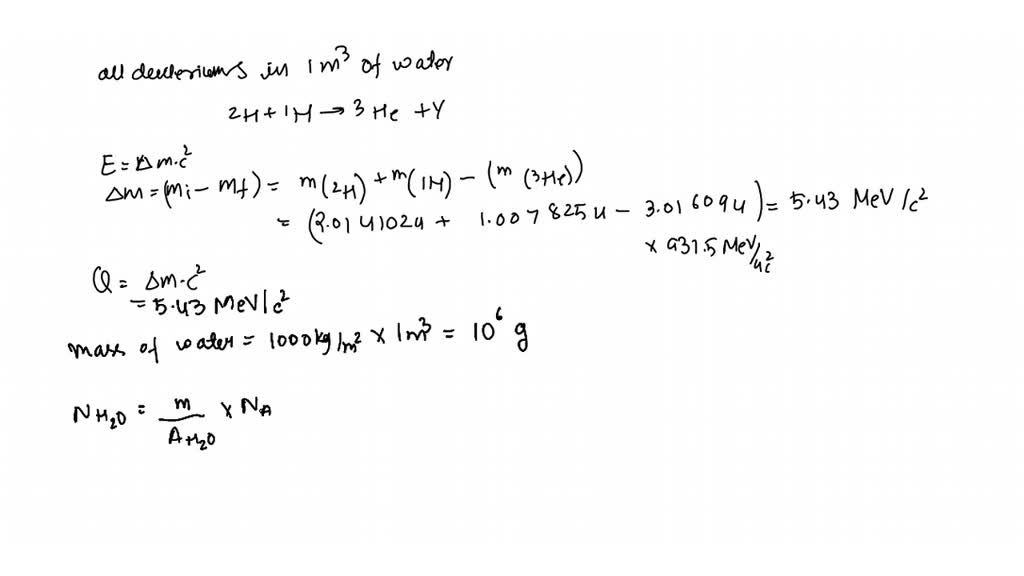 all deuteriums in 1m³ of water
2H + 1H → 3 He + γ
E = Δm.c²
Δm = (mi - mf) = m(2H) + m(1H) - (m (3He))
= (2.014102u + 1.007825u - 3.016094) = 5.43 MeV/c²
× 931.5 MeV/uc²
Q = Δm.c²
= 5.43 MeV/c²
mass of water = 1000kg/m² × 1m³ = 10⁶ g
N H₂O = m / A H₂O × NA